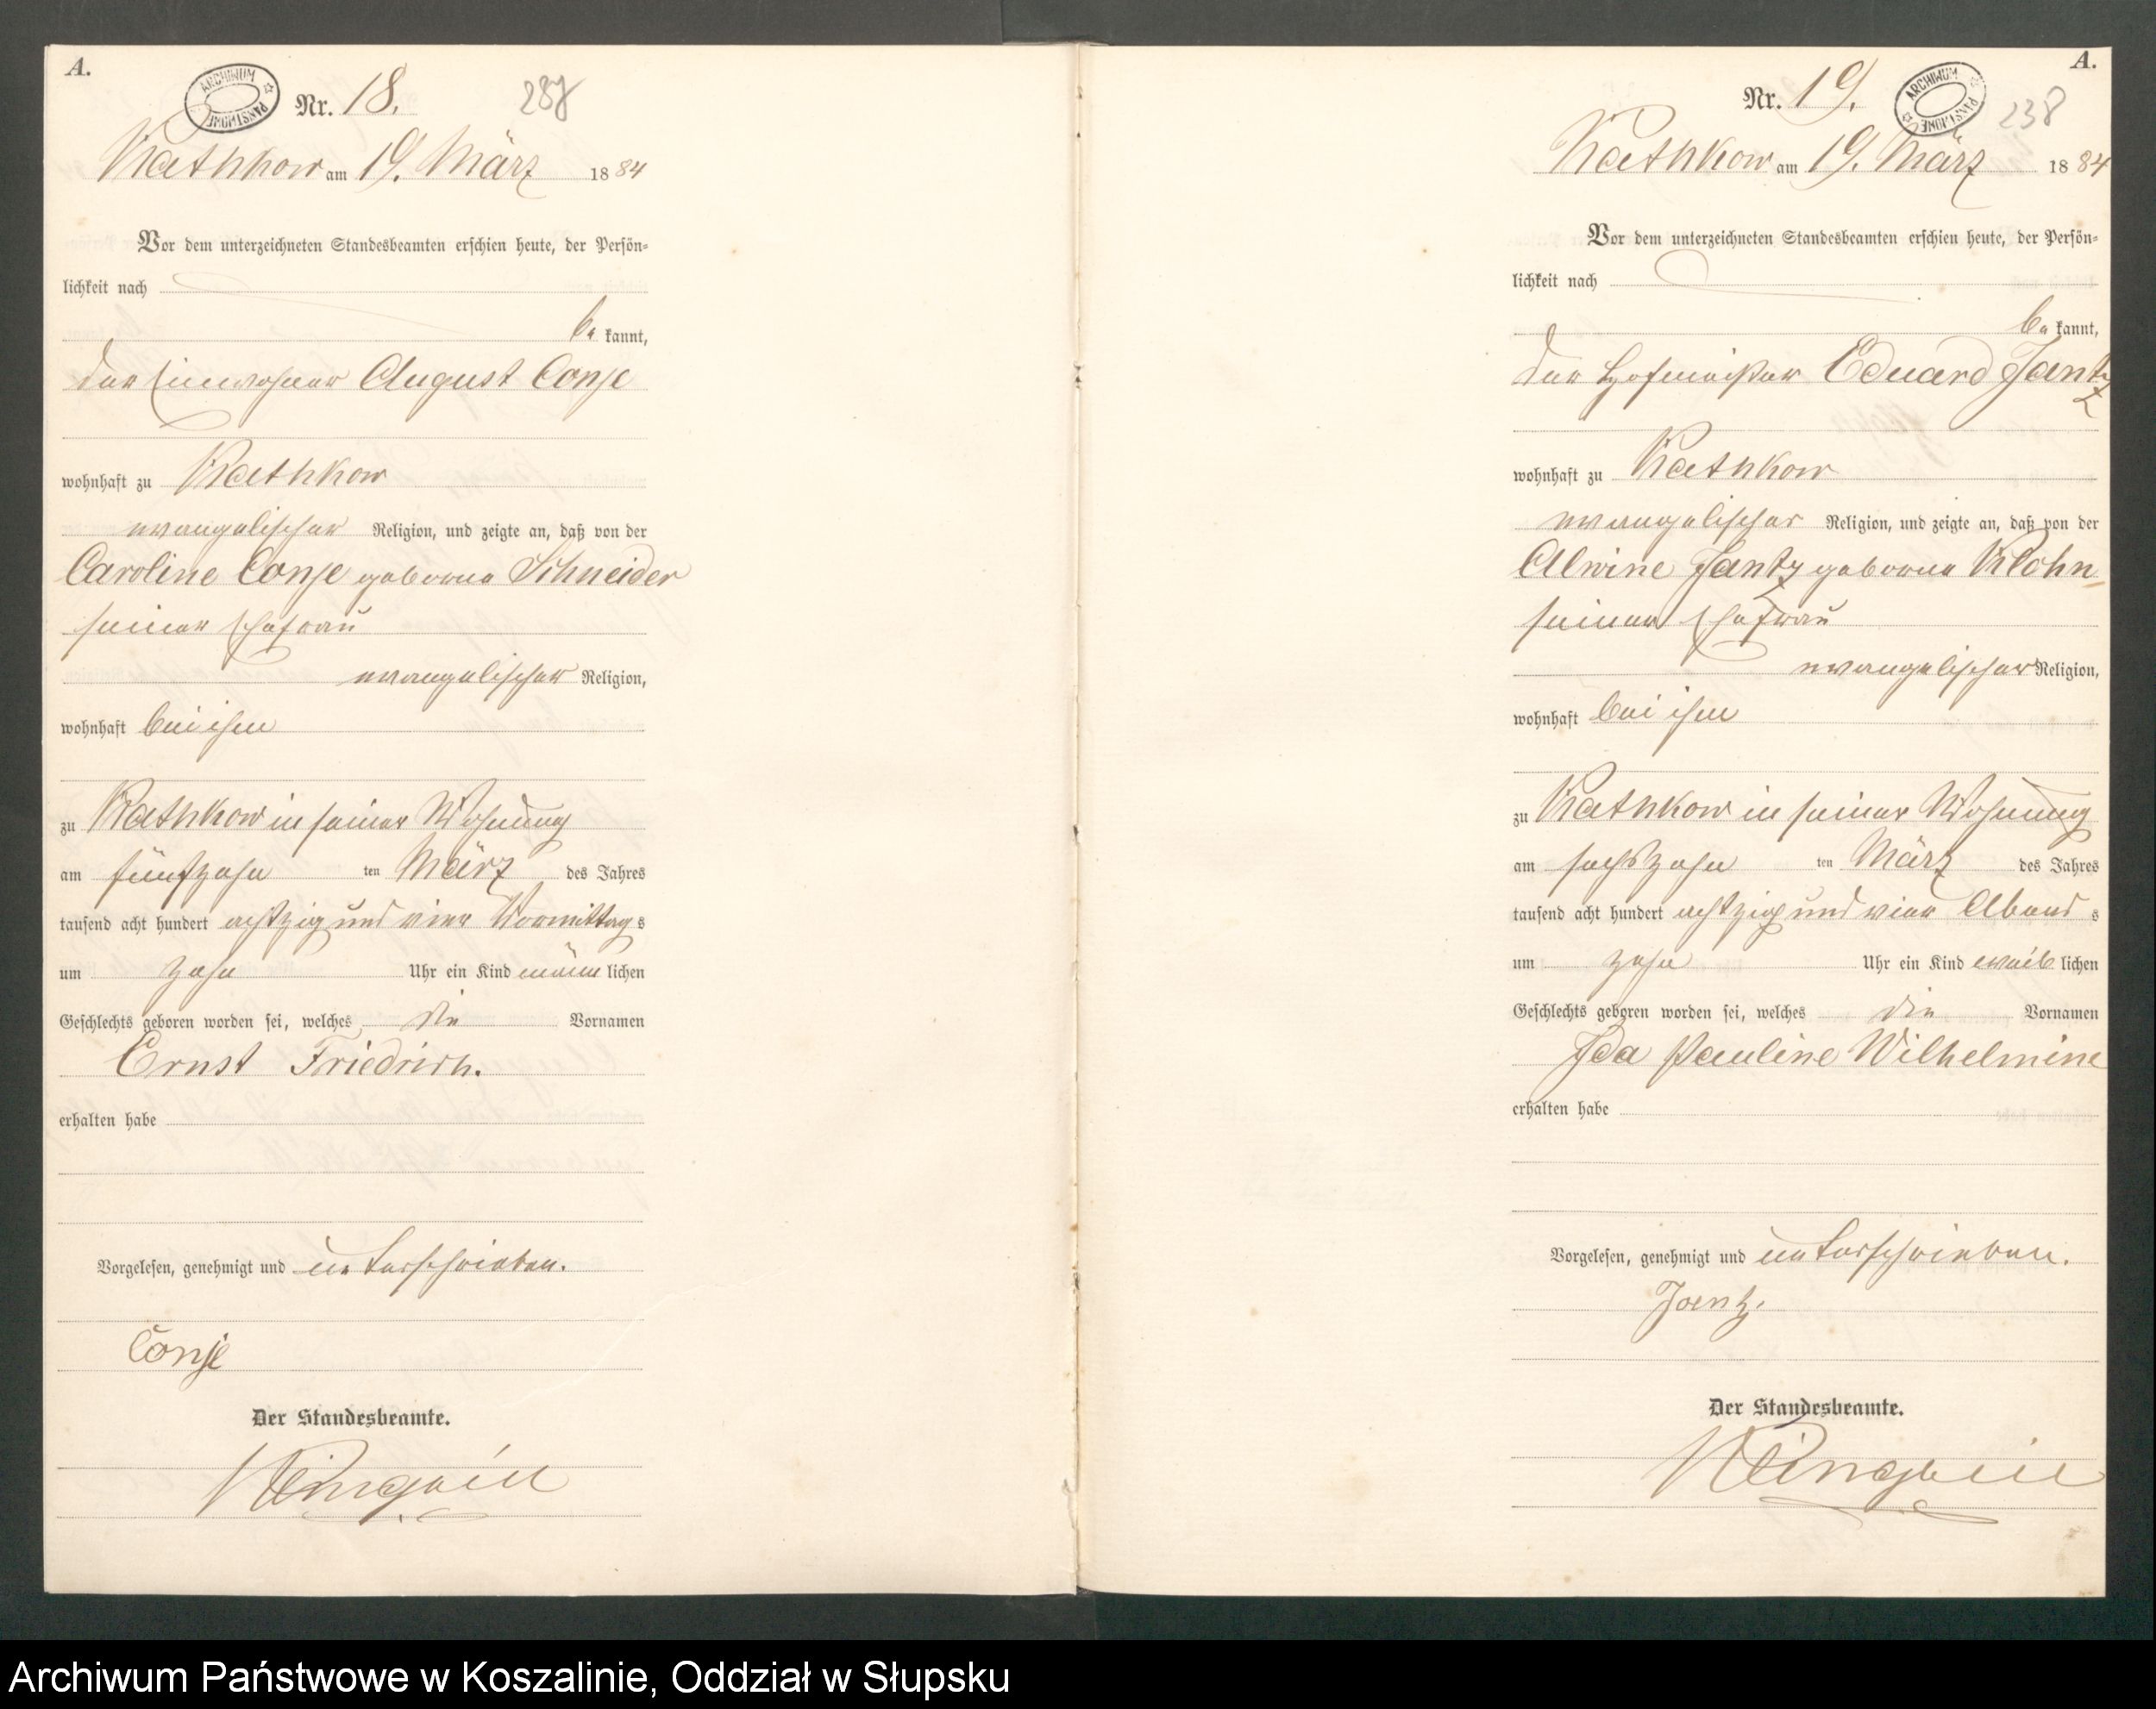 A.
ARCHIWUM PAŃSTWOWE
Nr. 18.
Rathkow am 19. März 1884
Vor dem unterzeichneten Standesbeamten erschien heute, der Persön-
lichkeit nach
be kannt,
der Einwohner August Conje
wohnhaft zu Rathkow
evangelischer Religion, und zeigte an, daß von der
Caroline Conje geborne Schneider
seiner Ehefrau
evangelischer Religion,
wohnhaft bei ihm
zu Rathkow in seiner Wohnung
am fünfzehn ten März des Jahres
tausend acht hundert achtzig und vier Vormittag s
um zehn Uhr ein Kind männ lichen
Geschlechts geboren worden sei, welches die Vornamen
Ernst Friedrich.
erhalten habe
Vorgelesen, genehmigt und unterschrieben.
Conje
Der Standesbeamte.
A.
Nr. 19.
ARCHIWUM PAŃSTWOWE
238
Rathkow am 19. März 1884
Vor dem unterzeichneten Standesbeamten erschien heute, der Persön-
lichkeit nach
be kannt,
der Hofmeister Eduard Jantz
wohnhaft zu Rathkow
evangelischer Religion, und zeigte an, daß von der
Alwine Jantz geborne Klohn
seiner Ehefrau
evangelischer Religion,
wohnhaft bei ihm
zu Rathkow in seiner Wohnung
am sechszehn ten März des Jahres
tausend acht hundert achtzig und vier Abend s
um zehn Uhr ein Kind weib lichen
Geschlechts geboren worden sei, welches die Vornamen
Ida Pauline Wilhelmine
erhalten habe
Vorgelesen, genehmigt und unterschrieben.
Jantz.
Der Standesbeamte.
Archiwum Państwowe w Koszalinie, Oddział w Słupsku